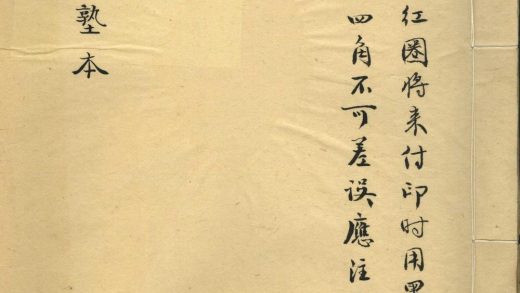 红圈将来付印时用黑
四角不可差误應注
塾本